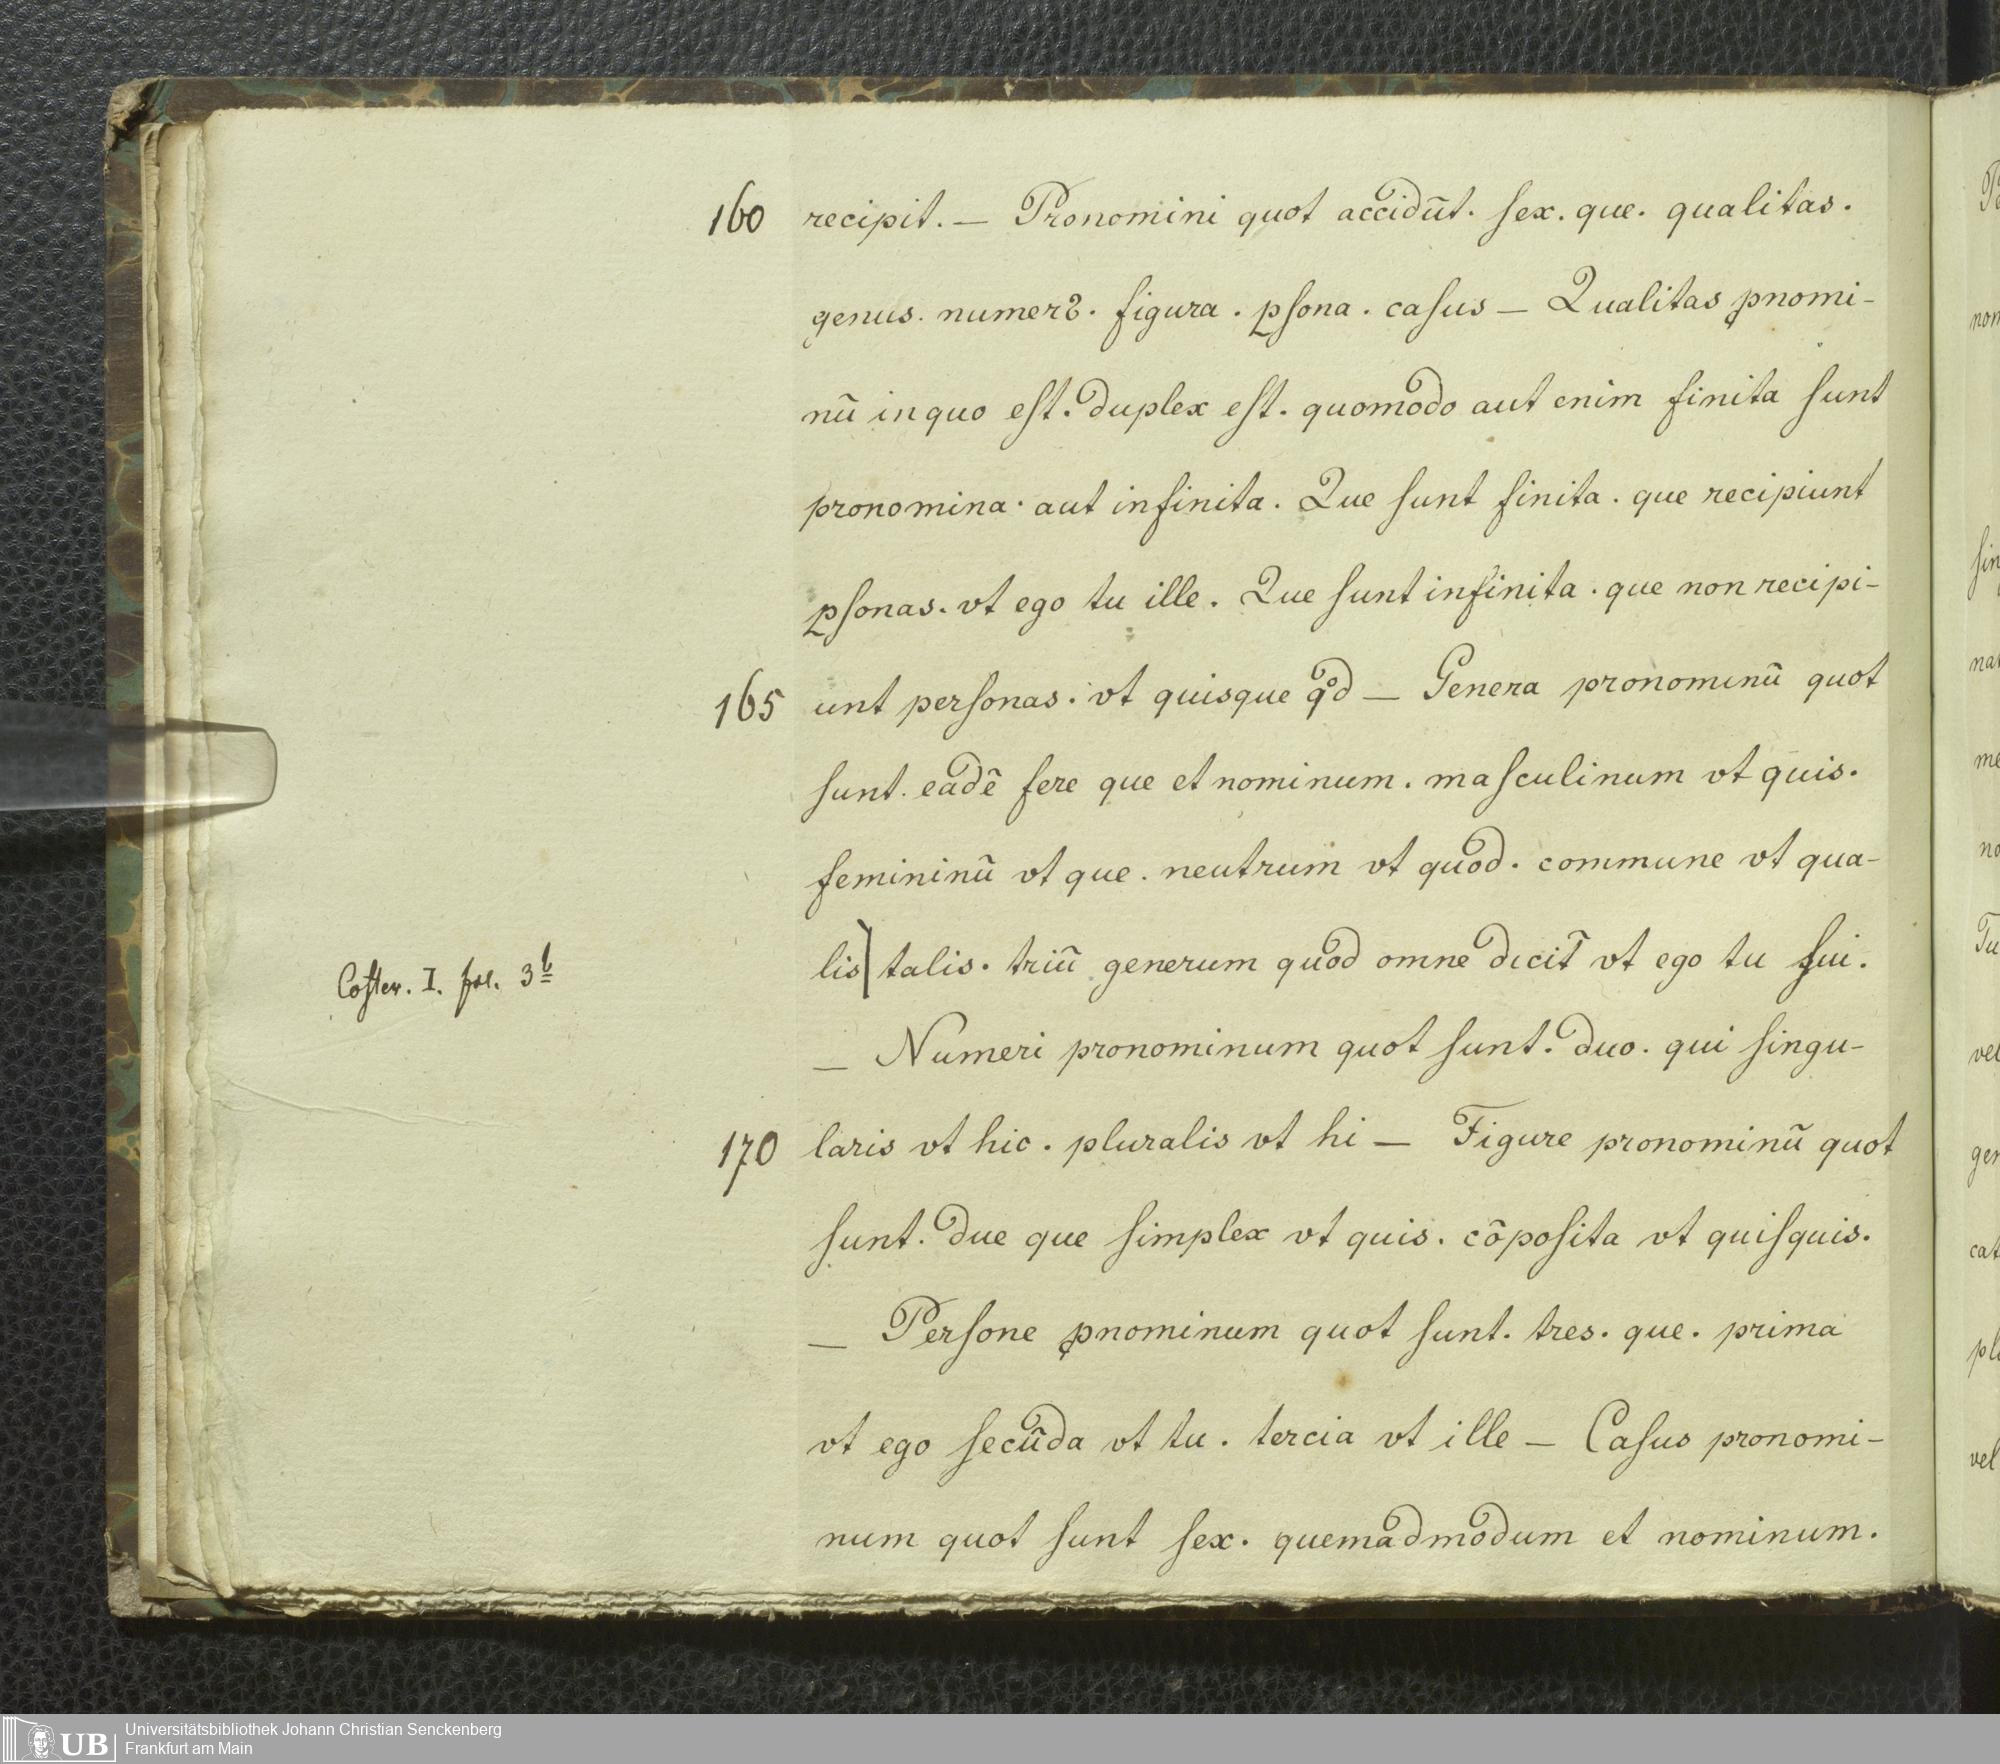 160 recipit. — Pronomini quot accidūt. ſex. que. qualitas.
genus. numerꝰ. figura. ꝑſona. caſus — Qualitas ꝓnomi-
nū in quo eſt. duplex eſt. quomodo aut enim finita ſunt
pronomina. aut infinita. Que ſunt finita. que recipiunt
ꝑſonas. vt ego tu ille. Que ſunt infinita. que non recipi-
165 unt perſonas. vt quisque qͦd — Genera pronominū quot
ſunt. eadē fere que et nominum. maſculinum vt quis.
femininū vt que. neutrum vt quod. commune vt qua-
Coſter. I. fol. 3ᵇ
lis] talis. triū generum quod omne dicit̄ vt ego tu ſui.
— Numeri pronominum quot ſunt. duo. qui ſingu-
170 laris vt hic. pluralis vt hi — Figure pronominū quot
ſunt. due que ſimplex vt quis. cōpoſita vt quiſquis.
— Perſone ꝓnominum quot ſunt. tres. que. prima
vt ego ſecūda vt tu. tercia vt ille — Caſus pronomi-
num quot ſunt ſex. quemadmodum et nominum.
P
non
ſin
nat
me
no
Tu
vel
gen
cat
pl
vel
UB Universitätsbibliothek Johann Christian Senckenberg
Frankfurt am Main